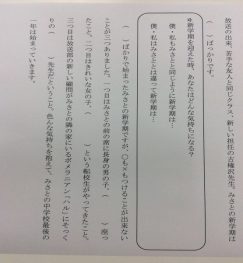 放送の出来、苦手な友人と同じクラス、新しい担任の古権沢先生。みさとの新学期は
（　　）ばっかりです。
○新学期を迎えた時、あなたはどんな気持ちになる？
僕・私もみさとと同じように新学期は…
僕・私はみさととは違って新学期は…
（　　）ばかりで始まったみさとと新学期ですが、〇も×もつけることが出来ない
ことが三つありました。一つ目はみさとの前の席に長身の男の子、（　　）座っ
たこと、二つ目はきれいな女の子、（　　）という転校生がやってきたこと、
三つ目は放送部の新しい顧問がみさとの隣の家にいるポメラニアン「ハル」にそっく
りの（　　）先生だということ。色んな気持ちを抱えて、みさとの中学校最後の
一年は始まっていきます。